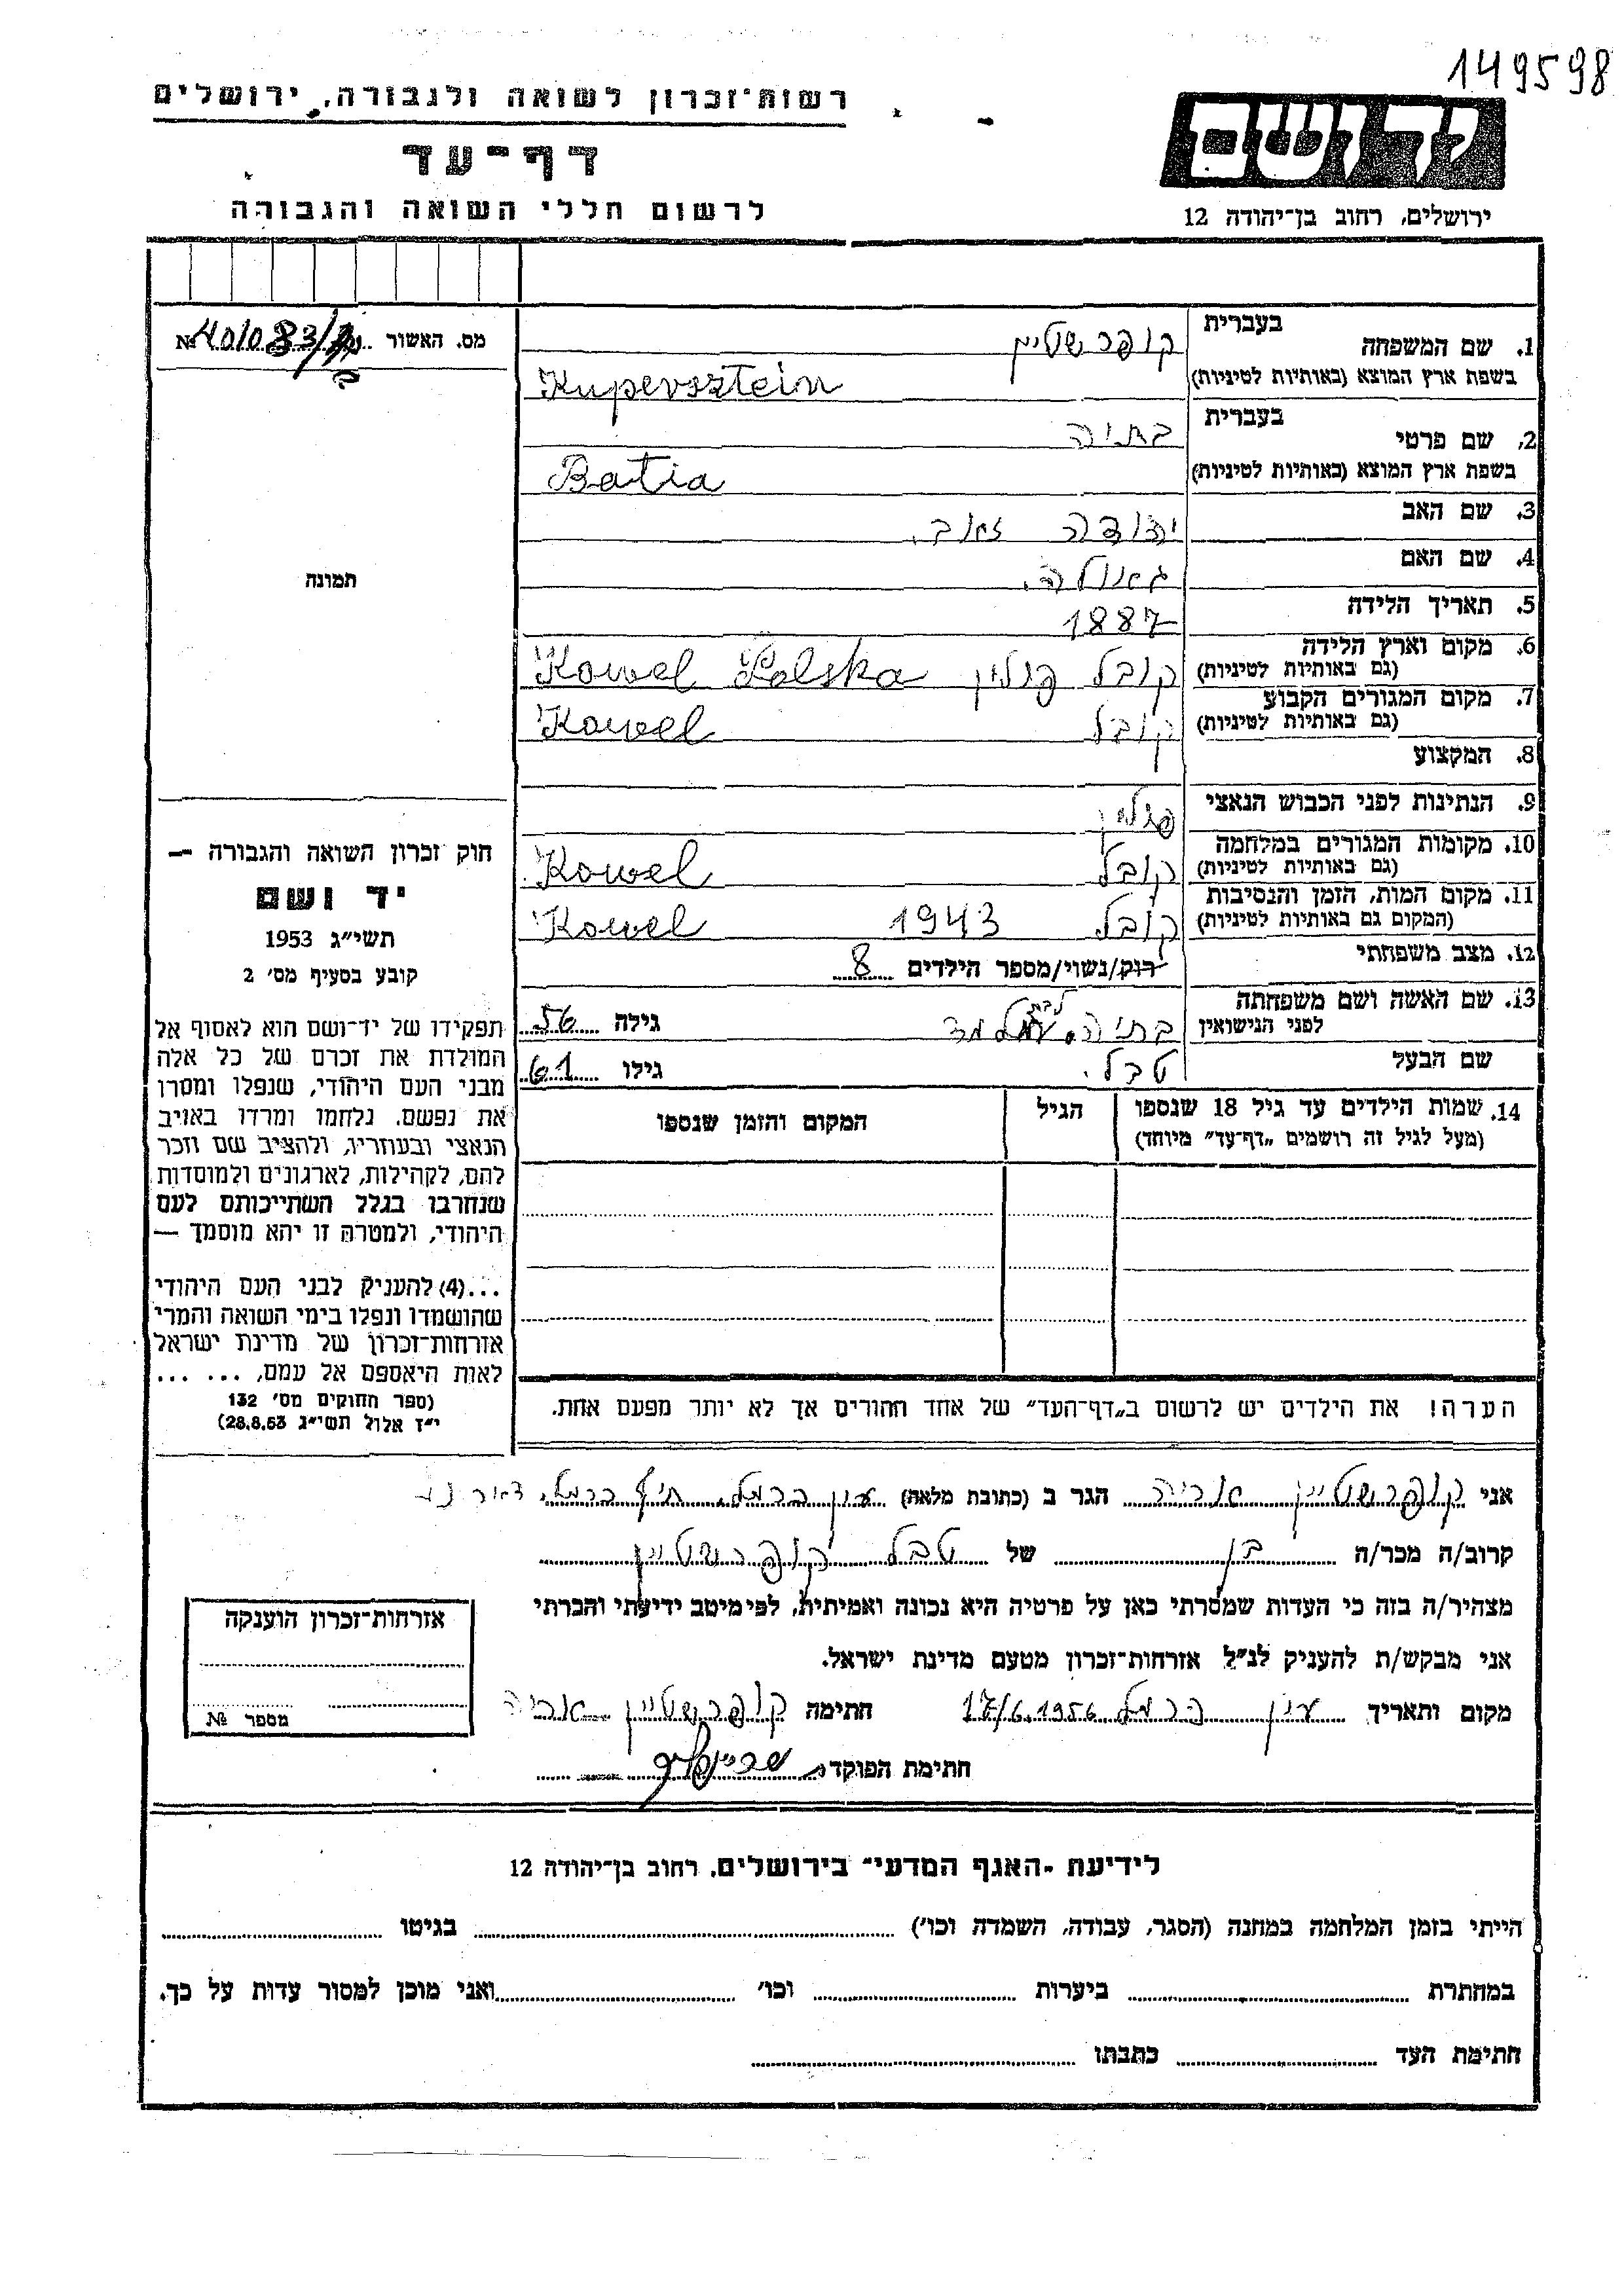 149598
רשות־זכרון לשואה ולגבורה, ירושלים
דף־עד
לרשום חללי השואה והגבורה
יד ושם
ירושלים, רחוב בן־יהודה 12
מס. האשור № 401083/
תמונה
1. שם המשפחה בעברית קופרשטיין
בשפת ארץ המוצא (באותיות לטיניות) Kupersztein
2. שם פרטי בעברית בתיה
בשפת ארץ המוצא (באותיות לטיניות) Batia
3. שם האב יהודה זאב.
4. שם האם גאולה.
5. תאריך הלידה 1887
6. מקום וארץ הלידה (גם באותיות לטיניות) קובל פולין Kowel Polska
7. מקום המגורים הקבוע (גם באותיות לטיניות) קובל Kowel
8. המקצוע
9. הנתינות לפני הכבוש הנאצי פולין
10. מקומות המגורים במלחמה (גם באותיות לטיניות) קובל Kowel
11. מקום המות, הזמן והנסיבות (המקום גם באותיות לטיניות) קובל 1943 Kowel
12. מצב משפחתי רוק/נשוי/מספר הילדים 8
13. שם האשה ושם משפחתה לפני הנישואין בתיה. לבית גילה 56
שם הבעל טבל. גילו 61
14. שמות הילדים עד גיל 18 שנספו (מעל לגיל זה רושמים „דף־עד״ מיוחד) הגיל המקום והזמן שנספו
הערה! את הילדים יש לרשום ב„דף־העד״ של אחד ההורים אך לא יותר מפעם אחת.
חוק זכרון השואה והגבורה —
יד ושם
תשי״ג 1953
קובע בסעיף מס׳ 2
תפקידו של יד־ושם הוא לאסוף אל
המולדת את זכרם של כל אלה
מבני העם היהודי, שנפלו ומסרו
את נפשם. נלחמו ומרדו באויב
הנאצי ובעוזריו, ולהציב שם וזכר
להם, לקהילות, לארגונים ולמוסדות
שנחרבו בגלל השתייכותם לעם
היהודי, ולמטרה זו יהא מוסמך —
...(4) להעניק לבני העם היהודי
שהושמדו ונפלו בימי השואה והמרי
אזרחות־זכרון של מדינת ישראל
לאות היאספם אל עמם, ... ...
(ספר החוקים מס׳ 132
י״ז אלול תשי״ג 28.8.53)
אני קופרשטיין אריה הגר ב (כתובת מלאה) עין הכרמל, חוף הכרמל, דאר נע
קרוב/ה מכר/ה בן של טבל קופרשטיין
מצהיר/ה בזה כי העדות שמסרתי כאן על פרטיה היא נכונה ואמיתית, לפי מיטב ידיעתי והכרתי
אני מבקש/ת להעניק לנ״ל אזרחות־זכרון מטעם מדינת ישראל.
מקום ותאריך עין כרמל 17/6.1956 חתימה קופרשטיין אריה
חתימת הפוקד
אזרחות־זכרון הוענקה
מספר №
לידיעת ״האגף המדעי״ בירושלים, רחוב בן־יהודה 12
הייתי בזמן המלחמה במחנה (הסגר, עבודה, השמדה וכו׳) בגיטו
במחתרת ביערות וכו׳ ואני מוכן למסור עדות על כך.
חתימת העד כתבתו